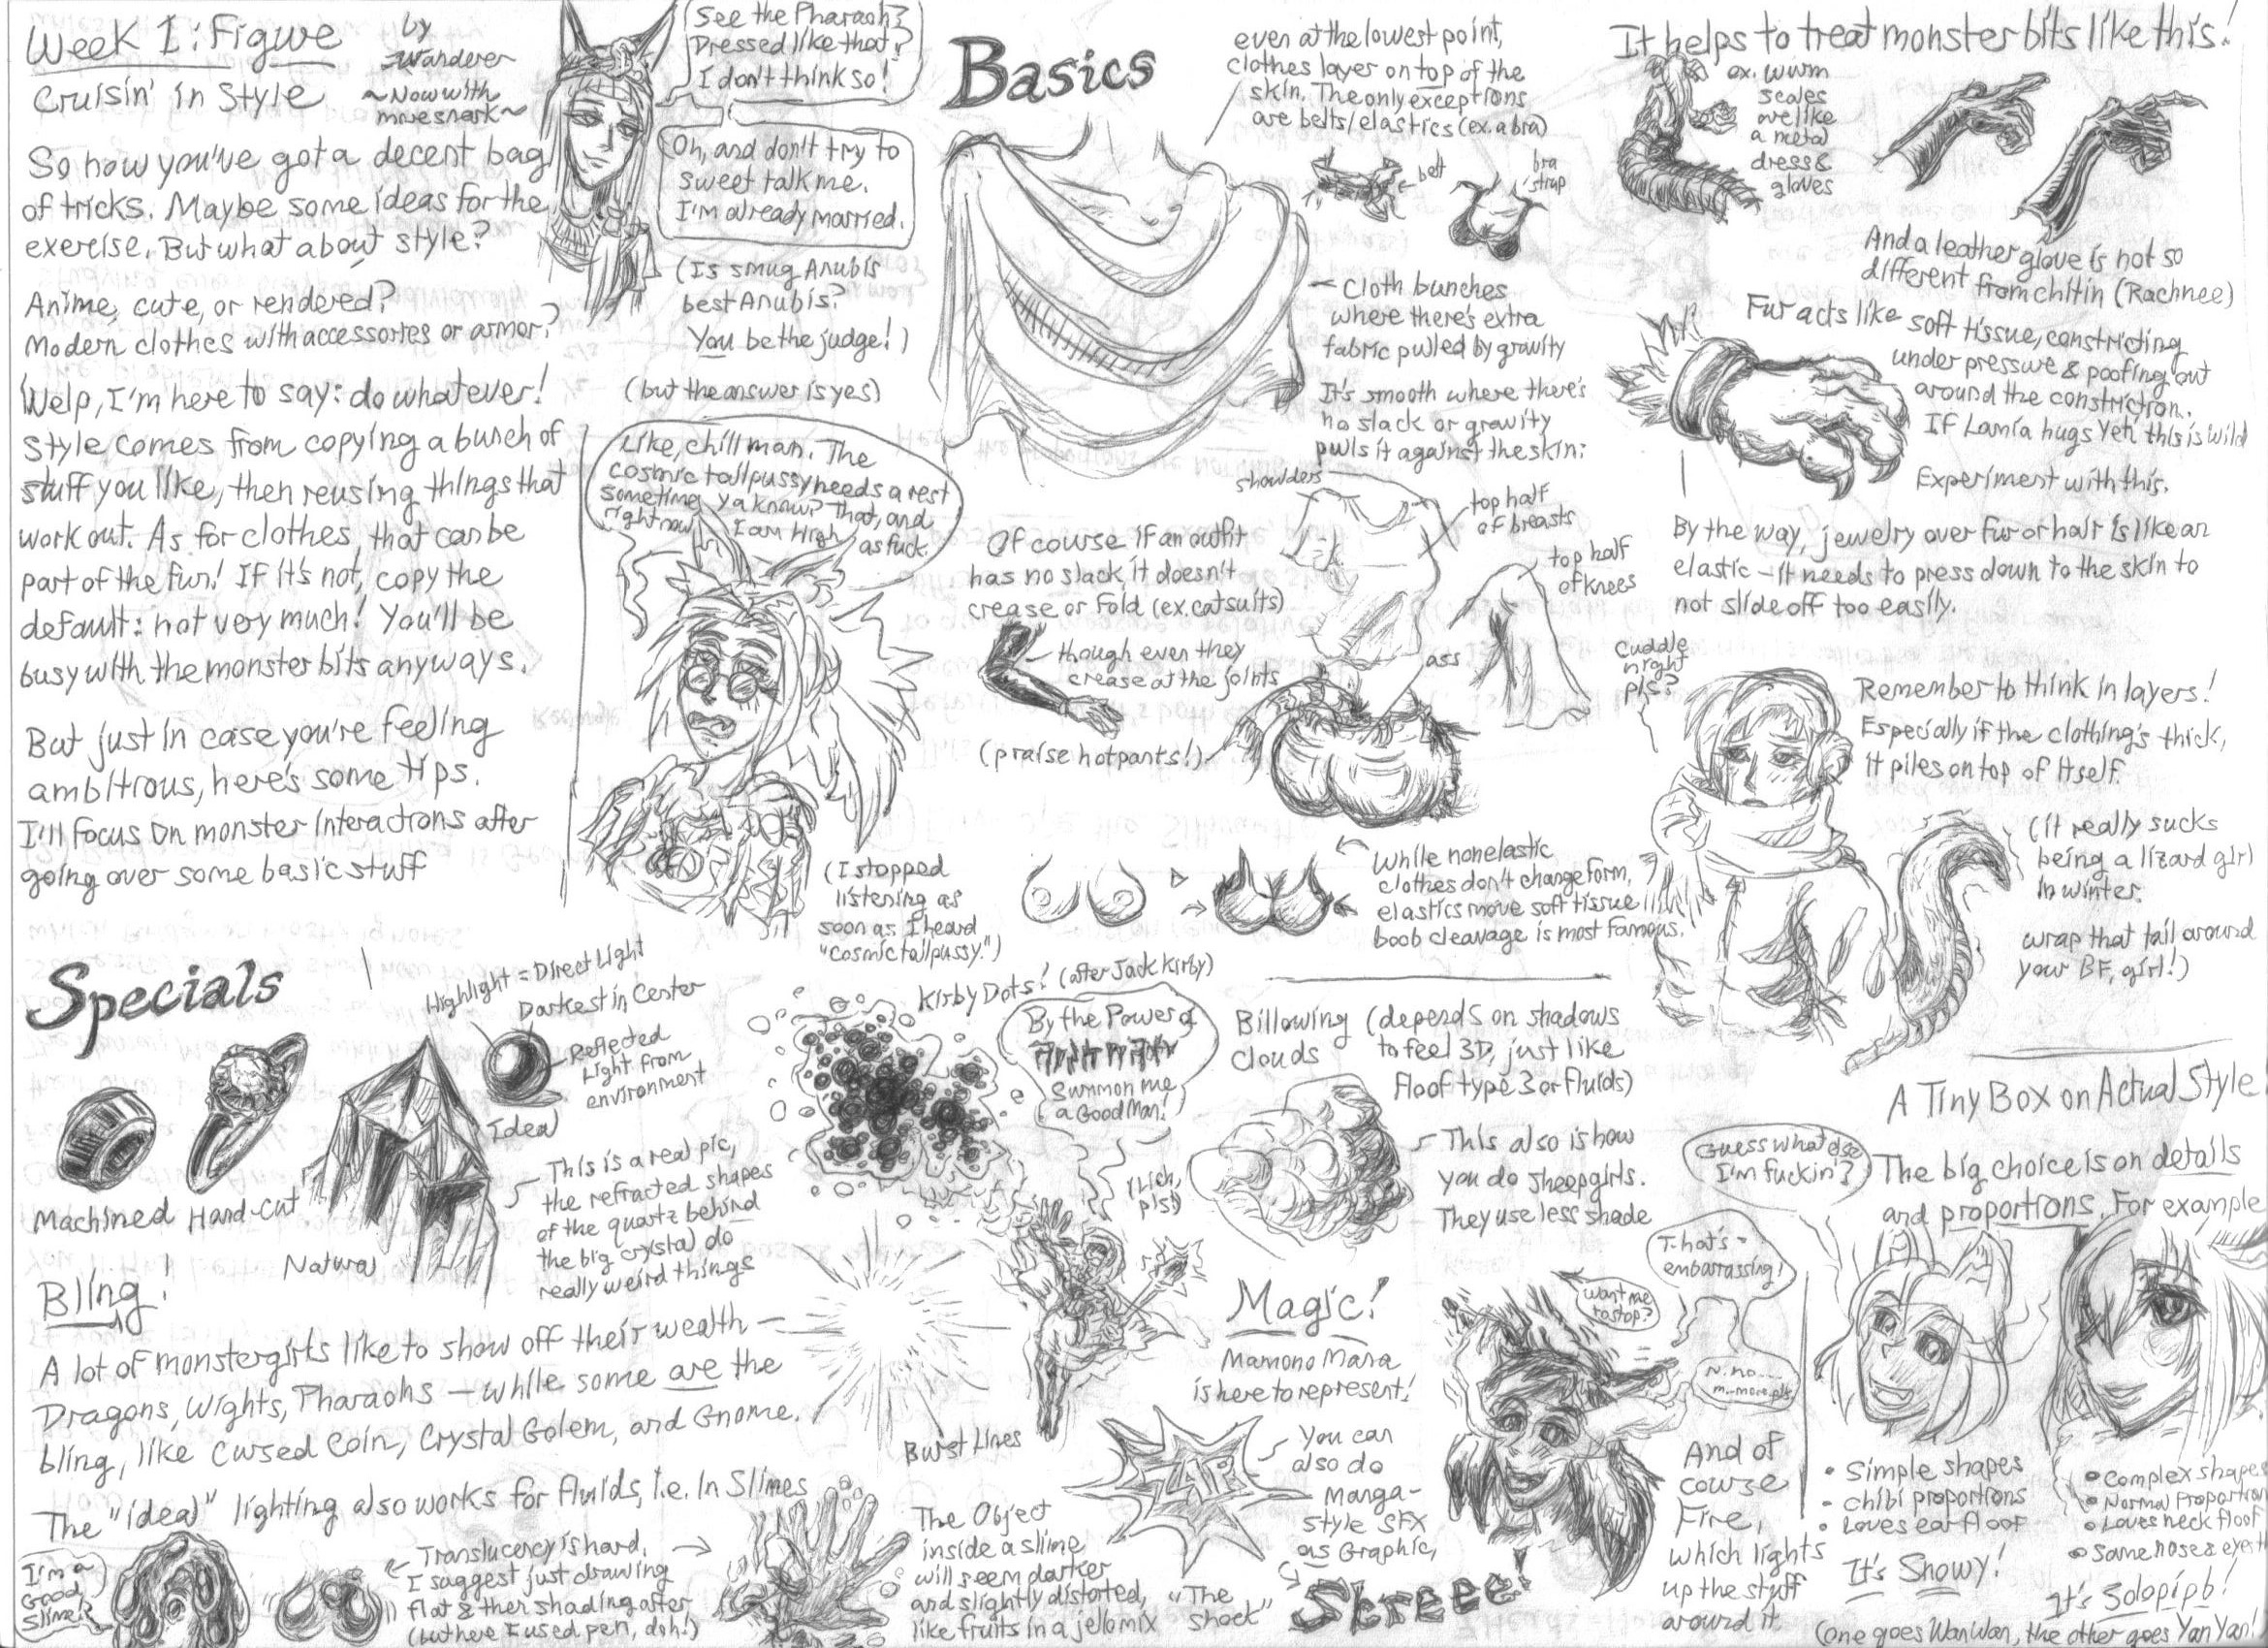 Week 1: Figure
Cruisin' in Style
by
Wanderer
~Now with
more snark~
So now you've got a decent bag
of tricks. Maybe some ideas for the
exercise. But what about style?
Anime, cute, or rendered?
Modern clothes with accessories or armor?
Welp, I'm here to say: do whatever!
Style comes from copying a bunch of
stuff you like, then reusing things that
work out. As for clothes, that can be
part of the fun! If it's not, copy the
default: not very much! You'll be
busy with the monster bits anyways.
But just in case you're feeling
ambitious, here's some tips.
I'll focus on monster interactions after
going over some basic stuff
See the Pharaoh?
Dressed like that?
I don't think so!
Oh, and don't try to
sweet talk me.
I'm already married.
(Is smug Anubis
best Anubis?
You be the judge!)
(but the answer is yes)
Like, chill man. The
cosmic tailpussy needs a rest
sometime, ya know? That, and
right now I am High
as fuck.
(I stopped
listening as
soon as I heard
"Cosmic tailpussy.")
Basics
even at the lowest point,
clothes layer on top of the
skin. The only exceptions
are belts/elastics (ex. a bra)
belt
bra
strap
- Cloth bunches
where there's extra
fabric pulled by gravity
It's smooth where there's
no slack or gravity
pulls it against the skin:
shoulders
top half
of breasts
top half
of knees
ass
Of course if an outfit
has no slack, it doesn't
crease or fold (ex. catsuits)
though even they
crease at the joints
(praise hotpants!)
While nonelastic
clothes don't change form,
elastics move soft tissue
boob cleavage is most famous.
It helps to treat monster bits like this!
ex. wurm
scales
are like
a metal
dress &
gloves
And a leather glove is not so
different from chitin (Rachnee)
Fur acts like soft tissue, constricting
under pressure & poofing out
around the constriction.
If Lamia hugs Yeti this is wild
Experiment with this.
By the way, jewelry over fur or hair is like an
elastic - it needs to press down to the skin to
not slide off too easily.
Cuddle
night
pls?
Remember to think in layers!
Especially if the clothing's thick,
it piles on top of itself.
(it really sucks
being a lizard girl
in winter.
wrap that tail around
your BF, girl!)
Specials
Highlight = Direct Light
Darkest in Center
Reflected
Light from
environment
Ideal
Machined
Hand-cut
Natural
This is a real pic,
the refracted shapes
of the quartz behind
the big crystal do
really weird things
Bling!
A lot of monstergirls like to show off their wealth -
Dragons, Wights, Pharaohs - while some are the
bling, like Cursed Coin, Crystal Golem, and Gnome.
The "ideal" lighting also works for fluids, i.e. In Slimes
I'm a
Good
Slime!
Translucency is hard.
I suggest just drawing
flat & then shading after
(but here I used pen, doh!)
The Object
inside a slime
will seem darker
and slightly distorted,
like fruits in a jello mix
Kirby Dots! (after Jack Kirby)
By the Power of
Summon me
a Good Man!
(Lich,
pls!)
Burst Lines
Billowing
clouds
(depends on shadows
to feel 3D, just like
floof type 3 or fluids)
This also is how
you do sheepgirls.
They use less shade
Magic!
Mamono Mana
is here to represent!
ZAP
"The
shock"
You can
also do
Manga-
style SFX
as Graphic,
Skreee!
want me
to stop?
T-that's-
embarrassing!
N-no...
m-more pls
And of
course
Fire,
which lights
up the stuff
around it.
A Tiny Box on Actual Style
Guess what else
I'm fuckin'?
The big choice is on details
and proportions. For example
• Simple shapes
• chibi proportions
• Loves ear floof
It's Snowy!
• Complex shapes
• Normal Proportion
• Loves neck floof
• Same nose & eye
It's Solopipb!
(one goes Wan Wan, the other goes Yan Yan!